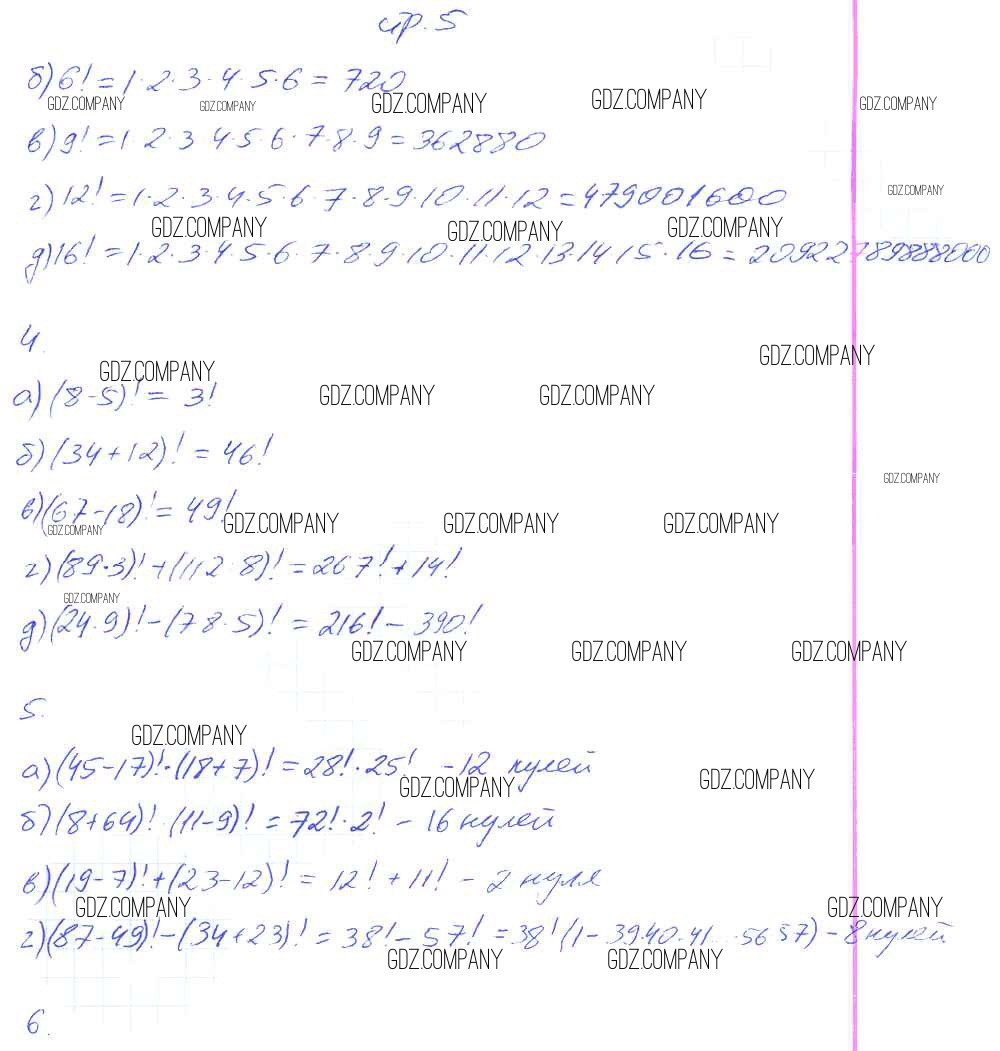 ср. 5
б) 6! = 1·2·3·4·5·6 = 720
GDZ.COMPANY GDZ.COMPANY GDZ.COMPANY GDZ.COMPANY GDZ.COMPANY
в) 9! = 1 2·3 4·5·6·7·8·9 = 362880
г) 12! = 1·2·3·4·5·6·7·8·9·10·11·12 = 479001600
GDZ.COMPANY
GDZ.COMPANY GDZ.COMPANY GDZ.COMPANY
д) 16! = 1·2·3·4·5·6·7·8·9·10·11·12·13·14 15·16 = 20922789888000
4.
GDZ.COMPANY GDZ.COMPANY
а) (8-5)! = 3!
GDZ.COMPANY GDZ.COMPANY
б) (34+12)! = 46!
GDZ.COMPANY
в) (67-18)! = 49!
GDZ.COMPANY GDZ.COMPANY GDZ.COMPANY GDZ.COMPANY
г) (89·3)! + (112:8)! = 267! + 14!
GDZ.COMPANY
д) (24·9)! - (78·5)! = 216! - 390!
GDZ.COMPANY GDZ.COMPANY GDZ.COMPANY
5.
GDZ.COMPANY
а) (45-17)!·(18+7)! = 28!·25! - 12 нулей
GDZ.COMPANY GDZ.COMPANY
б) (8+64)!·(11-9)! = 72!·2! - 16 нулей
в) (19-7)! + (23-12)! = 12! + 11! - 2 нуля
GDZ.COMPANY GDZ.COMPANY
г) (87-49)! - (34+23)! = 38! - 57! = 38! (1 - 39·40·41...·56 57) - 8 нулей
GDZ.COMPANY GDZ.COMPANY
6.